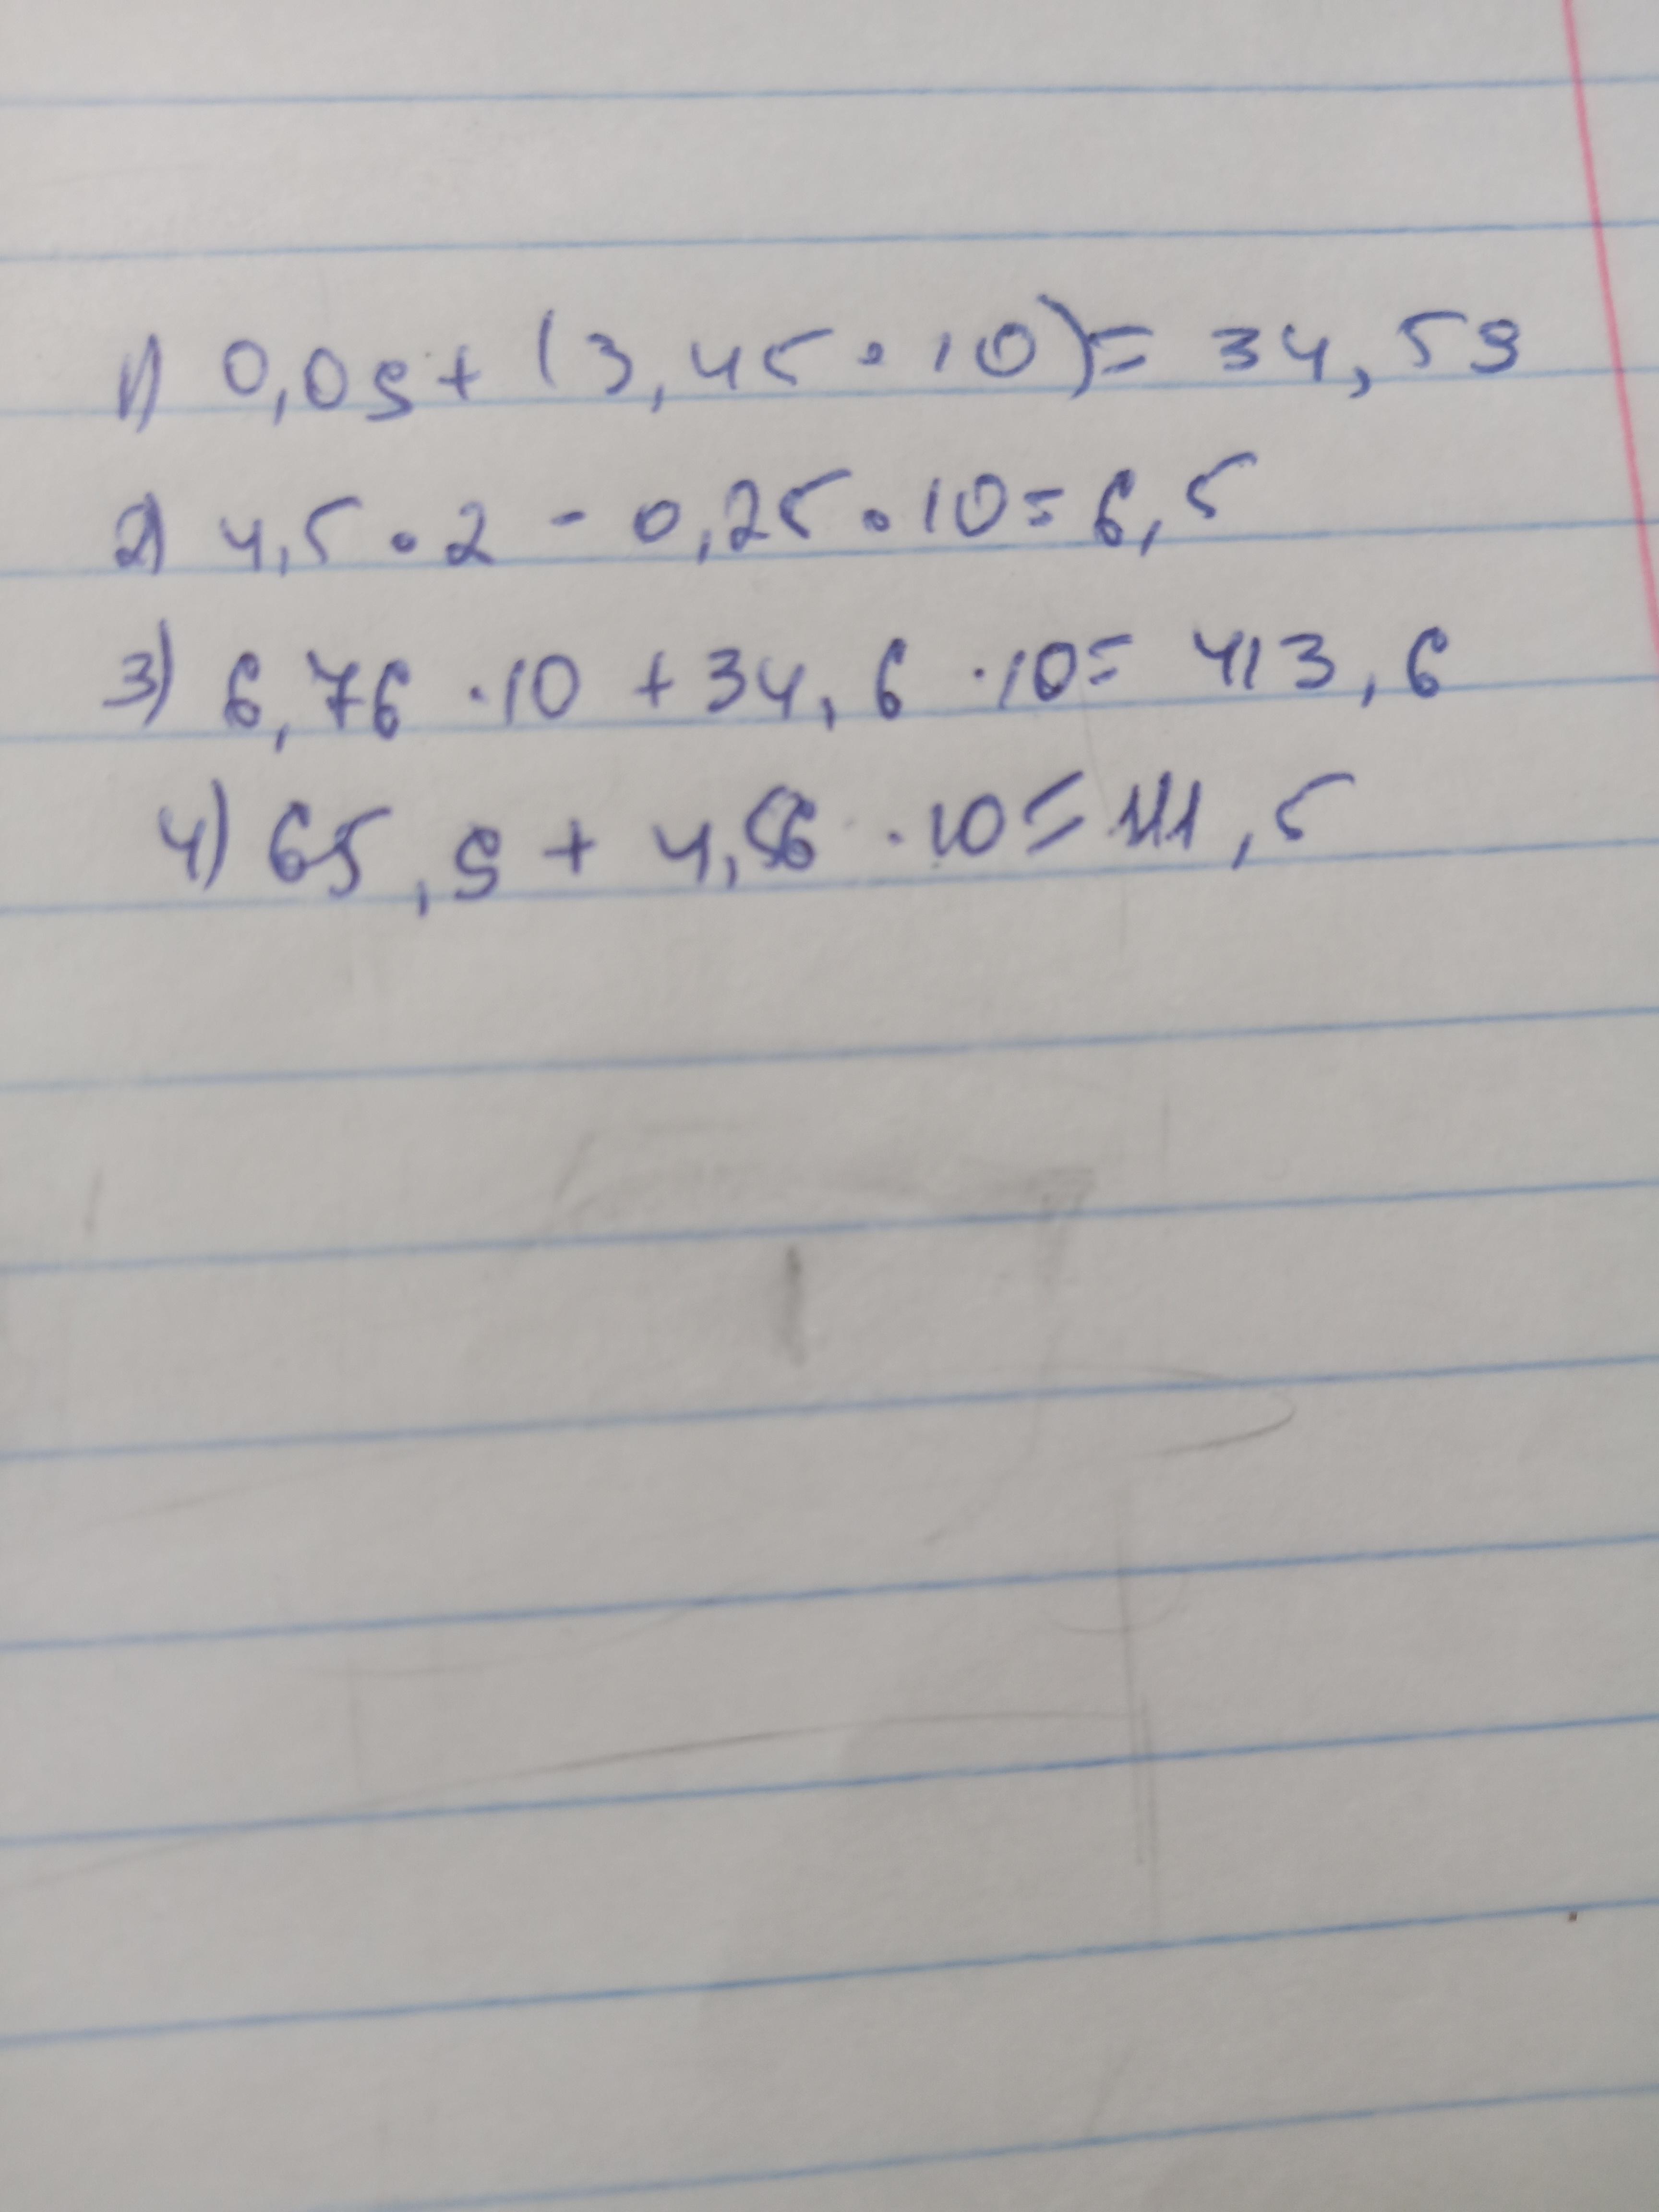 1) 0,09 + (3,45 · 10) = 34,59
2) 4,5 · 2 - 0,25 · 10 = 6,5
3) 6,76 · 10 + 34,6 · 10 = 413,6
4) 65,9 + 4,56 · 10 = 111,5